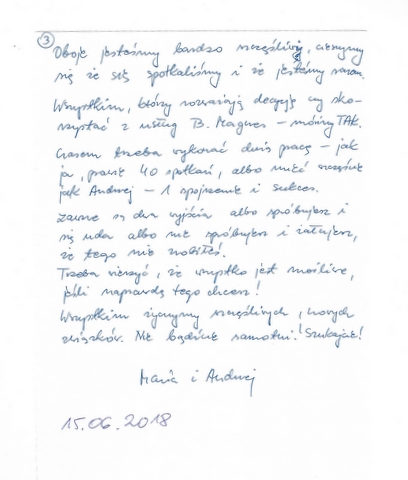 3
Oboje jesteśmy bardzo szczęśliwi, cieszymy
się że się spotkaliśmy i że jesteśmy razem.
Wszystkim, którzy rozważają decyzję czy sko-
rzystać z usług B. Magnes – mówimy TAK.
Czasem trzeba wykonać dużą pracę – jak
ja, prawie 40 spotkań, albo mieć szczęście
jak Andrzej – 1 spojrzenie i sukces.
Zawsze są dwa wyjścia albo spróbujesz i
się uda albo nie spróbujesz i żałujesz,
że tego nie zrobiłeś.
Trzeba wierzyć, że wszystko jest możliwe,
jeśli naprawdę tego chcesz!
Wszystkim życzymy szczęśliwych, nowych
związków. Nie bądźcie samotni! Szukajcie!
Maria i Andrzej
15.06.2018